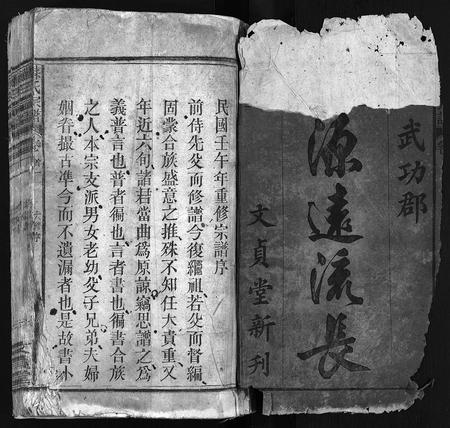 武功郡
源遠流長
文貞堂新刊
民國壬午年重修宗譜序
前侍先父而修譜今復繼祖若父而督編
固蒙合族盛意之推殊不知任大責重又
年近六旬諸若當曲為原諒竊思譜之為
義普言也普者徧也言者書也徧書合族
之人本宗支派男女老幼父子兄弟夫婦
姻眷撮古準今而不遺漏者也是故書小
氏宗譜